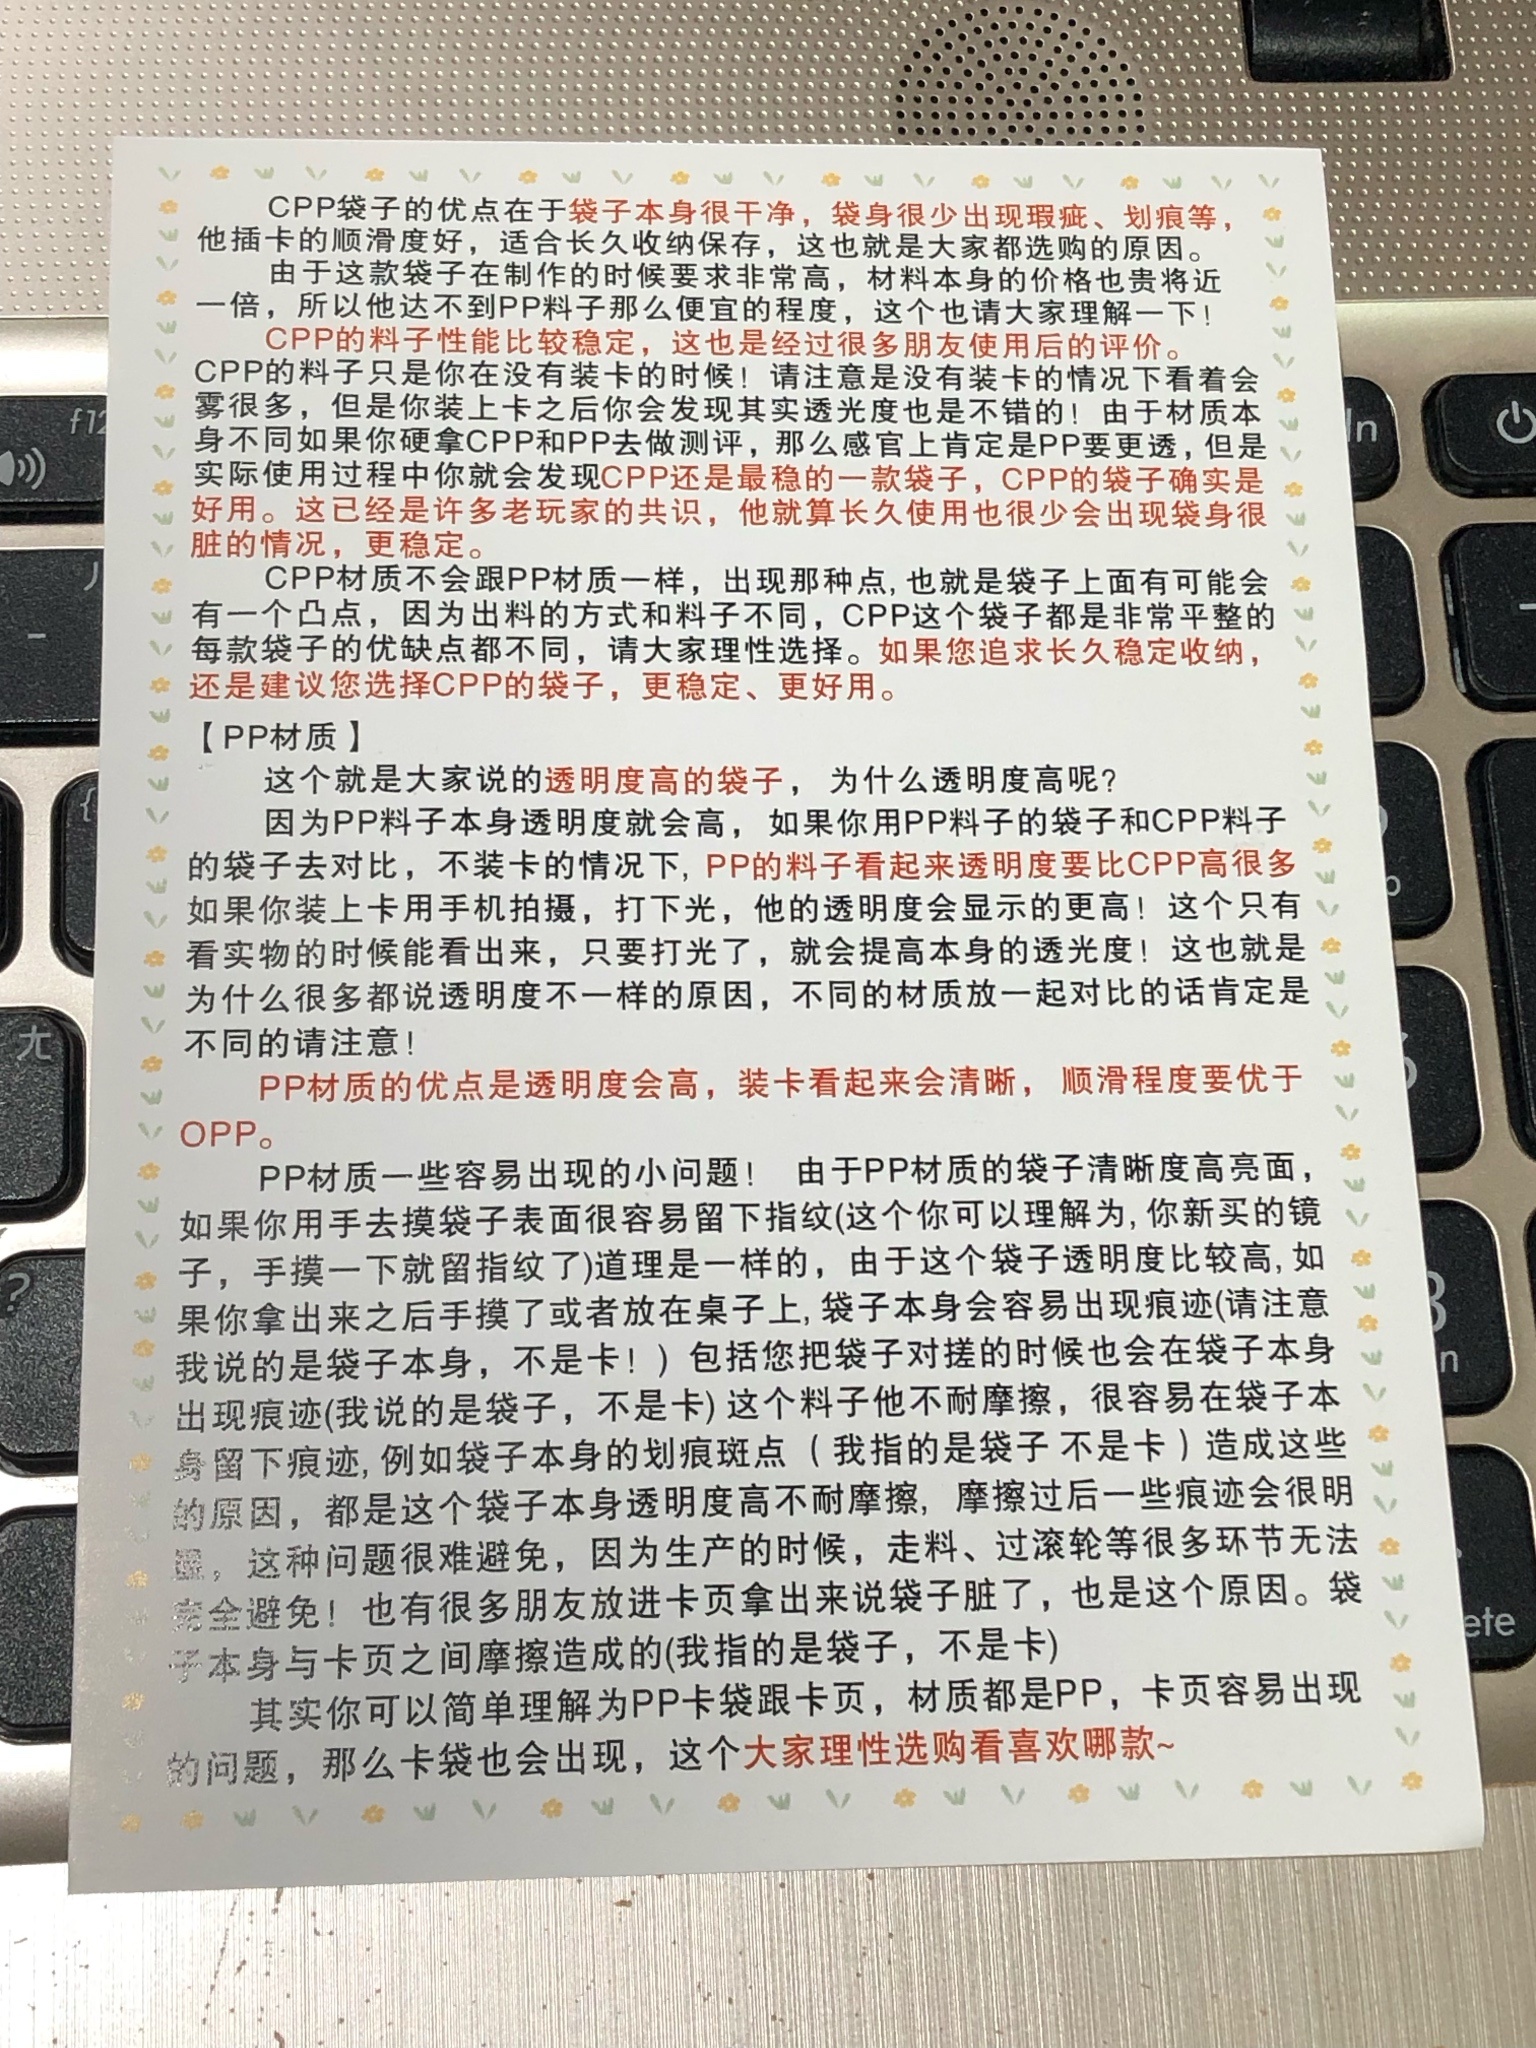 CPP袋子的优点在于袋子本身很干净，袋身很少出现瑕疵、划痕等，
他插卡的顺滑度好，适合长久收纳保存，这也就是大家都选购的原因。
由于这款袋子在制作的时候要求非常高，材料本身的价格也贵将近
一倍，所以他达不到PP料子那么便宜的程度，这个也请大家理解一下！
CPP的料子性能比较稳定，这也是经过很多朋友使用后的评价。
CPP的料子只是你在没有装卡的时候！请注意是没有装卡的情况下看着会
雾很多，但是你装上卡之后你会发现其实透光度也是不错的！由于材质本
身不同如果你硬拿CPP和PP去做测评，那么感官上肯定是PP要更透，但是
实际使用过程中你就会发现CPP还是最稳的一款袋子，CPP的袋子确实是
好用。这已经是许多老玩家的共识，他就算长久使用也很少会出现袋身很
脏的情况，更稳定。
CPP材质不会跟PP材质一样，出现那种点，也就是袋子上面有可能会
有一个凸点，因为出料的方式和料子不同，CPP这个袋子都是非常平整的
每款袋子的优缺点都不同，请大家理性选择。如果您追求长久稳定收纳，
还是建议您选择CPP的袋子，更稳定、更好用。
【PP材质】
这个就是大家说的透明度高的袋子，为什么透明度高呢？
因为PP料子本身透明度就会高，如果你用PP料子的袋子和CPP料子
的袋子去对比，不装卡的情况下，PP的料子看起来透明度要比CPP高很多
如果你装上卡用手机拍摄，打下光，他的透明度会显示的更高！这个只有
看实物的时候能看出来，只要打光了，就会提高本身的透光度！这也就是
为什么很多都说透明度不一样的原因，不同的材质放一起对比的话肯定是
不同的请注意！
PP材质的优点是透明度会高，装卡看起来会清晰，顺滑程度要优于
OPP。
PP材质一些容易出现的小问题！ 由于PP材质的袋子清晰度高亮面，
如果你用手去摸袋子表面很容易留下指纹(这个你可以理解为,你新买的镜
子，手摸一下就留指纹了)道理是一样的，由于这个袋子透明度比较高,如
果你拿出来之后手摸了或者放在桌子上,袋子本身会容易出现痕迹(请注意
我说的是袋子本身，不是卡！)包括您把袋子对搓的时候也会在袋子本身
出现痕迹(我说的是袋子，不是卡)这个料子他不耐摩擦，很容易在袋子本
身留下痕迹,例如袋子本身的划痕斑点（我指的是袋子 不是卡）造成这些
的原因，都是这个袋子本身透明度高不耐摩擦，摩擦过后一些痕迹会很明
显，这种问题很难避免，因为生产的时候，走料、过滚轮等很多环节无法
完全避免！也有很多朋友放进卡页拿出来说袋子脏了，也是这个原因。袋
子本身与卡页之间摩擦造成的(我指的是袋子，不是卡)
其实你可以简单理解为PP卡袋跟卡页，材质都是PP，卡页容易出现
的问题，那么卡袋也会出现，这个大家理性选购看喜欢哪款~
f12
ln
ㄦ
-
{
ㄤ
?
6
3
n
ete